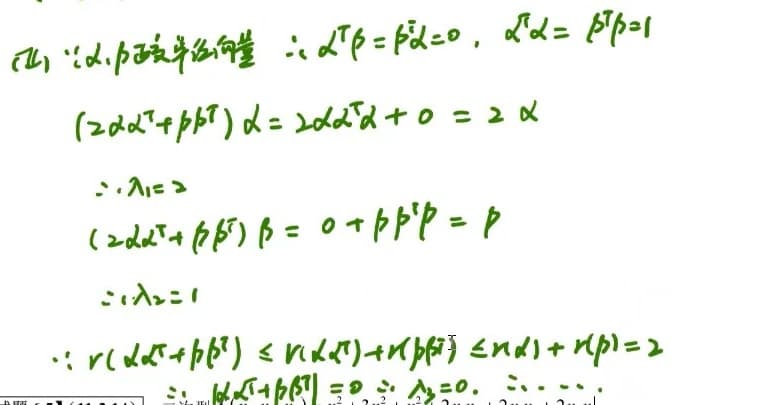 (Ⅱ) ∵α,β正交单位向量 ∴ αᵀβ=βᵀα=0, αᵀα=βᵀβ=1
(2ααᵀ+ββᵀ)α=2ααᵀα+0=2α
∴λ₁=2
(2ααᵀ+ββᵀ)β=0+ββᵀβ=β
∴λ₂=1
∵r(ααᵀ+ββᵀ)≤r(ααᵀ)+r(ββᵀ)≤r(α)+r(β)=2
∴|ααᵀ+ββᵀ|=0 ∴λ₃=0. ∴.....